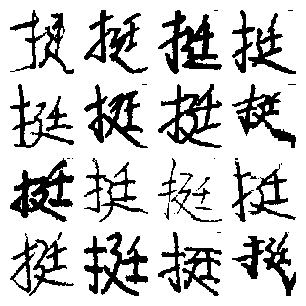 挺挺挺挺
挺挺挺挺
挺挺挺挺
挺挺挺挺